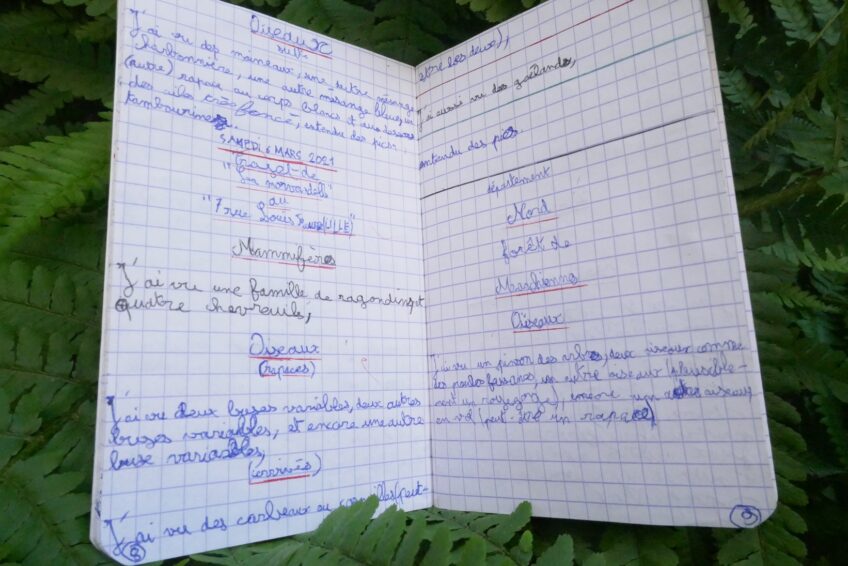 Oiseaux
suite
J'ai vu des moineaux, une autre mésange
charbonnière, une autre mésange bleue, un
(autre) rapace au corps blanc et au dessus
des ailes foncé, entendu des pics
tambouriner.
SAMEDI 6 MARS 2021
"Trajet de
au
"7 rue Louis (LILLE)"
Mammifères
J'ai vu une famille de ragondins et
quatre chevreuils,
Oiseaux
(rapaces)
J'ai vu deux buses variables, deux autres
buses variables, et encore une autre
buse variables,
(corvidés)
J'ai vu des corbeaux ou corneilles (peut-
8
être les deux),
J'ai aussi vu des goélands,
entendu des pics.
département
Nord
forêt de
Marchiennes
Oiseaux
J'ai vu un pinson des arbres, deux oiseaux comme
des poules faisanes, un autre oiseau
un rougegorge), encore un autre oiseau
en vol (peut-être un rapace)
9